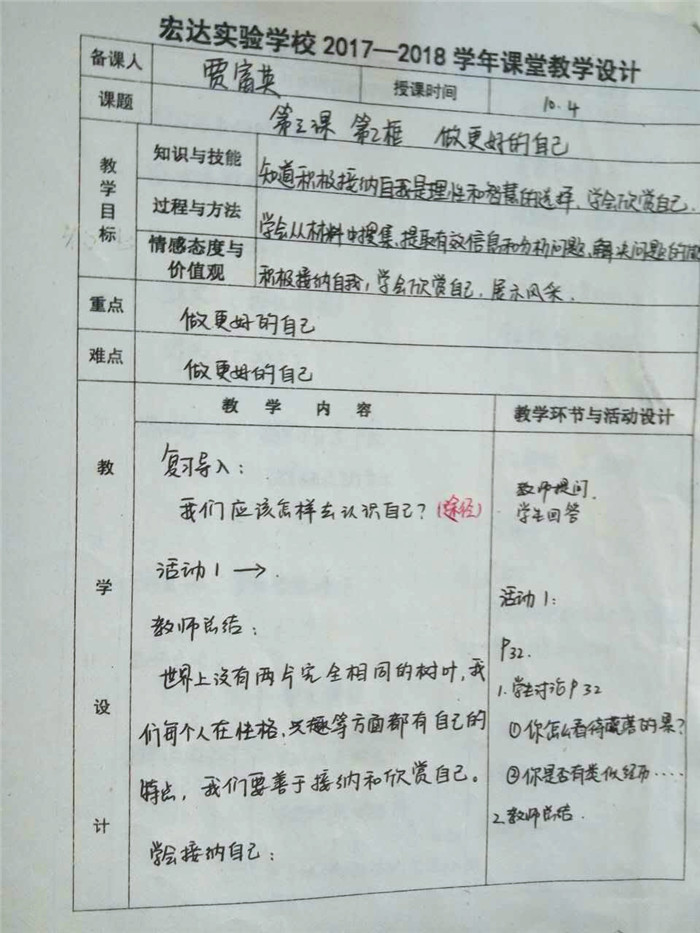 宏达实验学校2017—2018学年课堂教学设计
备课人 贾富英 授课时间 10.4
课题 第三课 第2框 做更好的自己
教学目标
知识与技能 知道积极接纳自我是理性和智慧的选择,学会欣赏自己.
过程与方法 学会从材料中搜集,提取有效信息和分析问题,解决问题的
情感态度与价值观 积极接纳自我,学会欣赏自己,展示风采.
重点 做更好的自己
难点 做更好的自己
教学设计
教 学 内 容
复习导入:
我们应该怎样去认识自己?(途径)
活动1→.
教师总结:
世界上没有两片完全相同的树叶,我
们每个人在性格、兴趣等方面都有自己的
特点,我们要善于接纳和欣赏自己。
学会接纳自己:
教学环节与活动设计
教师提问.
学生回答
活动1:
P32.
1.学生讨论P32
①你怎么看待 的果?
②你是否有类似经历……
2.教师总结.